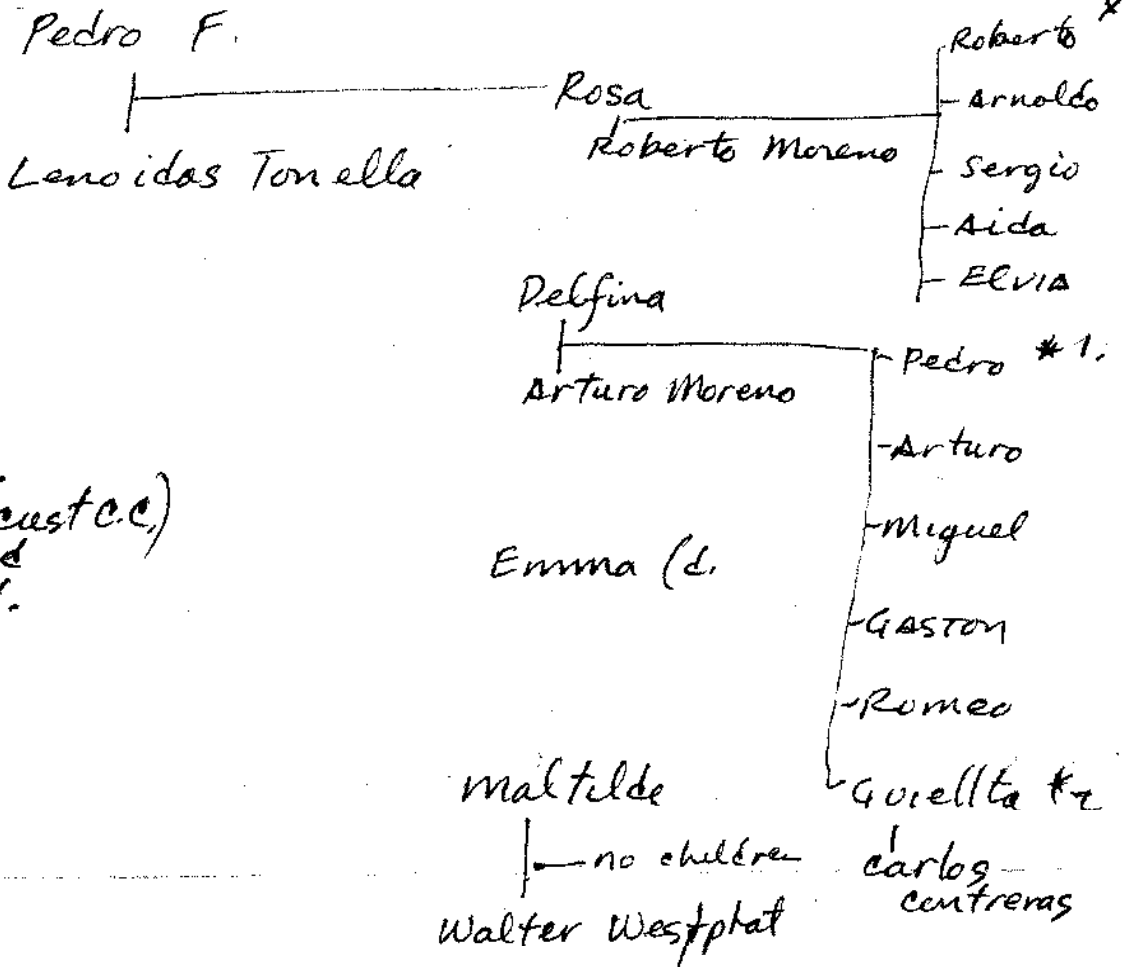 Pedro F.
Lenoidas Tonella
Rosa
Roberto Moreno
Roberto *
- Arnoldo
- Sergio
- Aida
- ELVIA
Delfina
Arturo Moreno
- Pedro * 1.
- Arturo
- Miguel
- GASTON
- Romeo
- Guiellta *2
carlos
contreras
cust c.c.)
d
Emma (d.
Maltilde
- no children
Walter Westphat